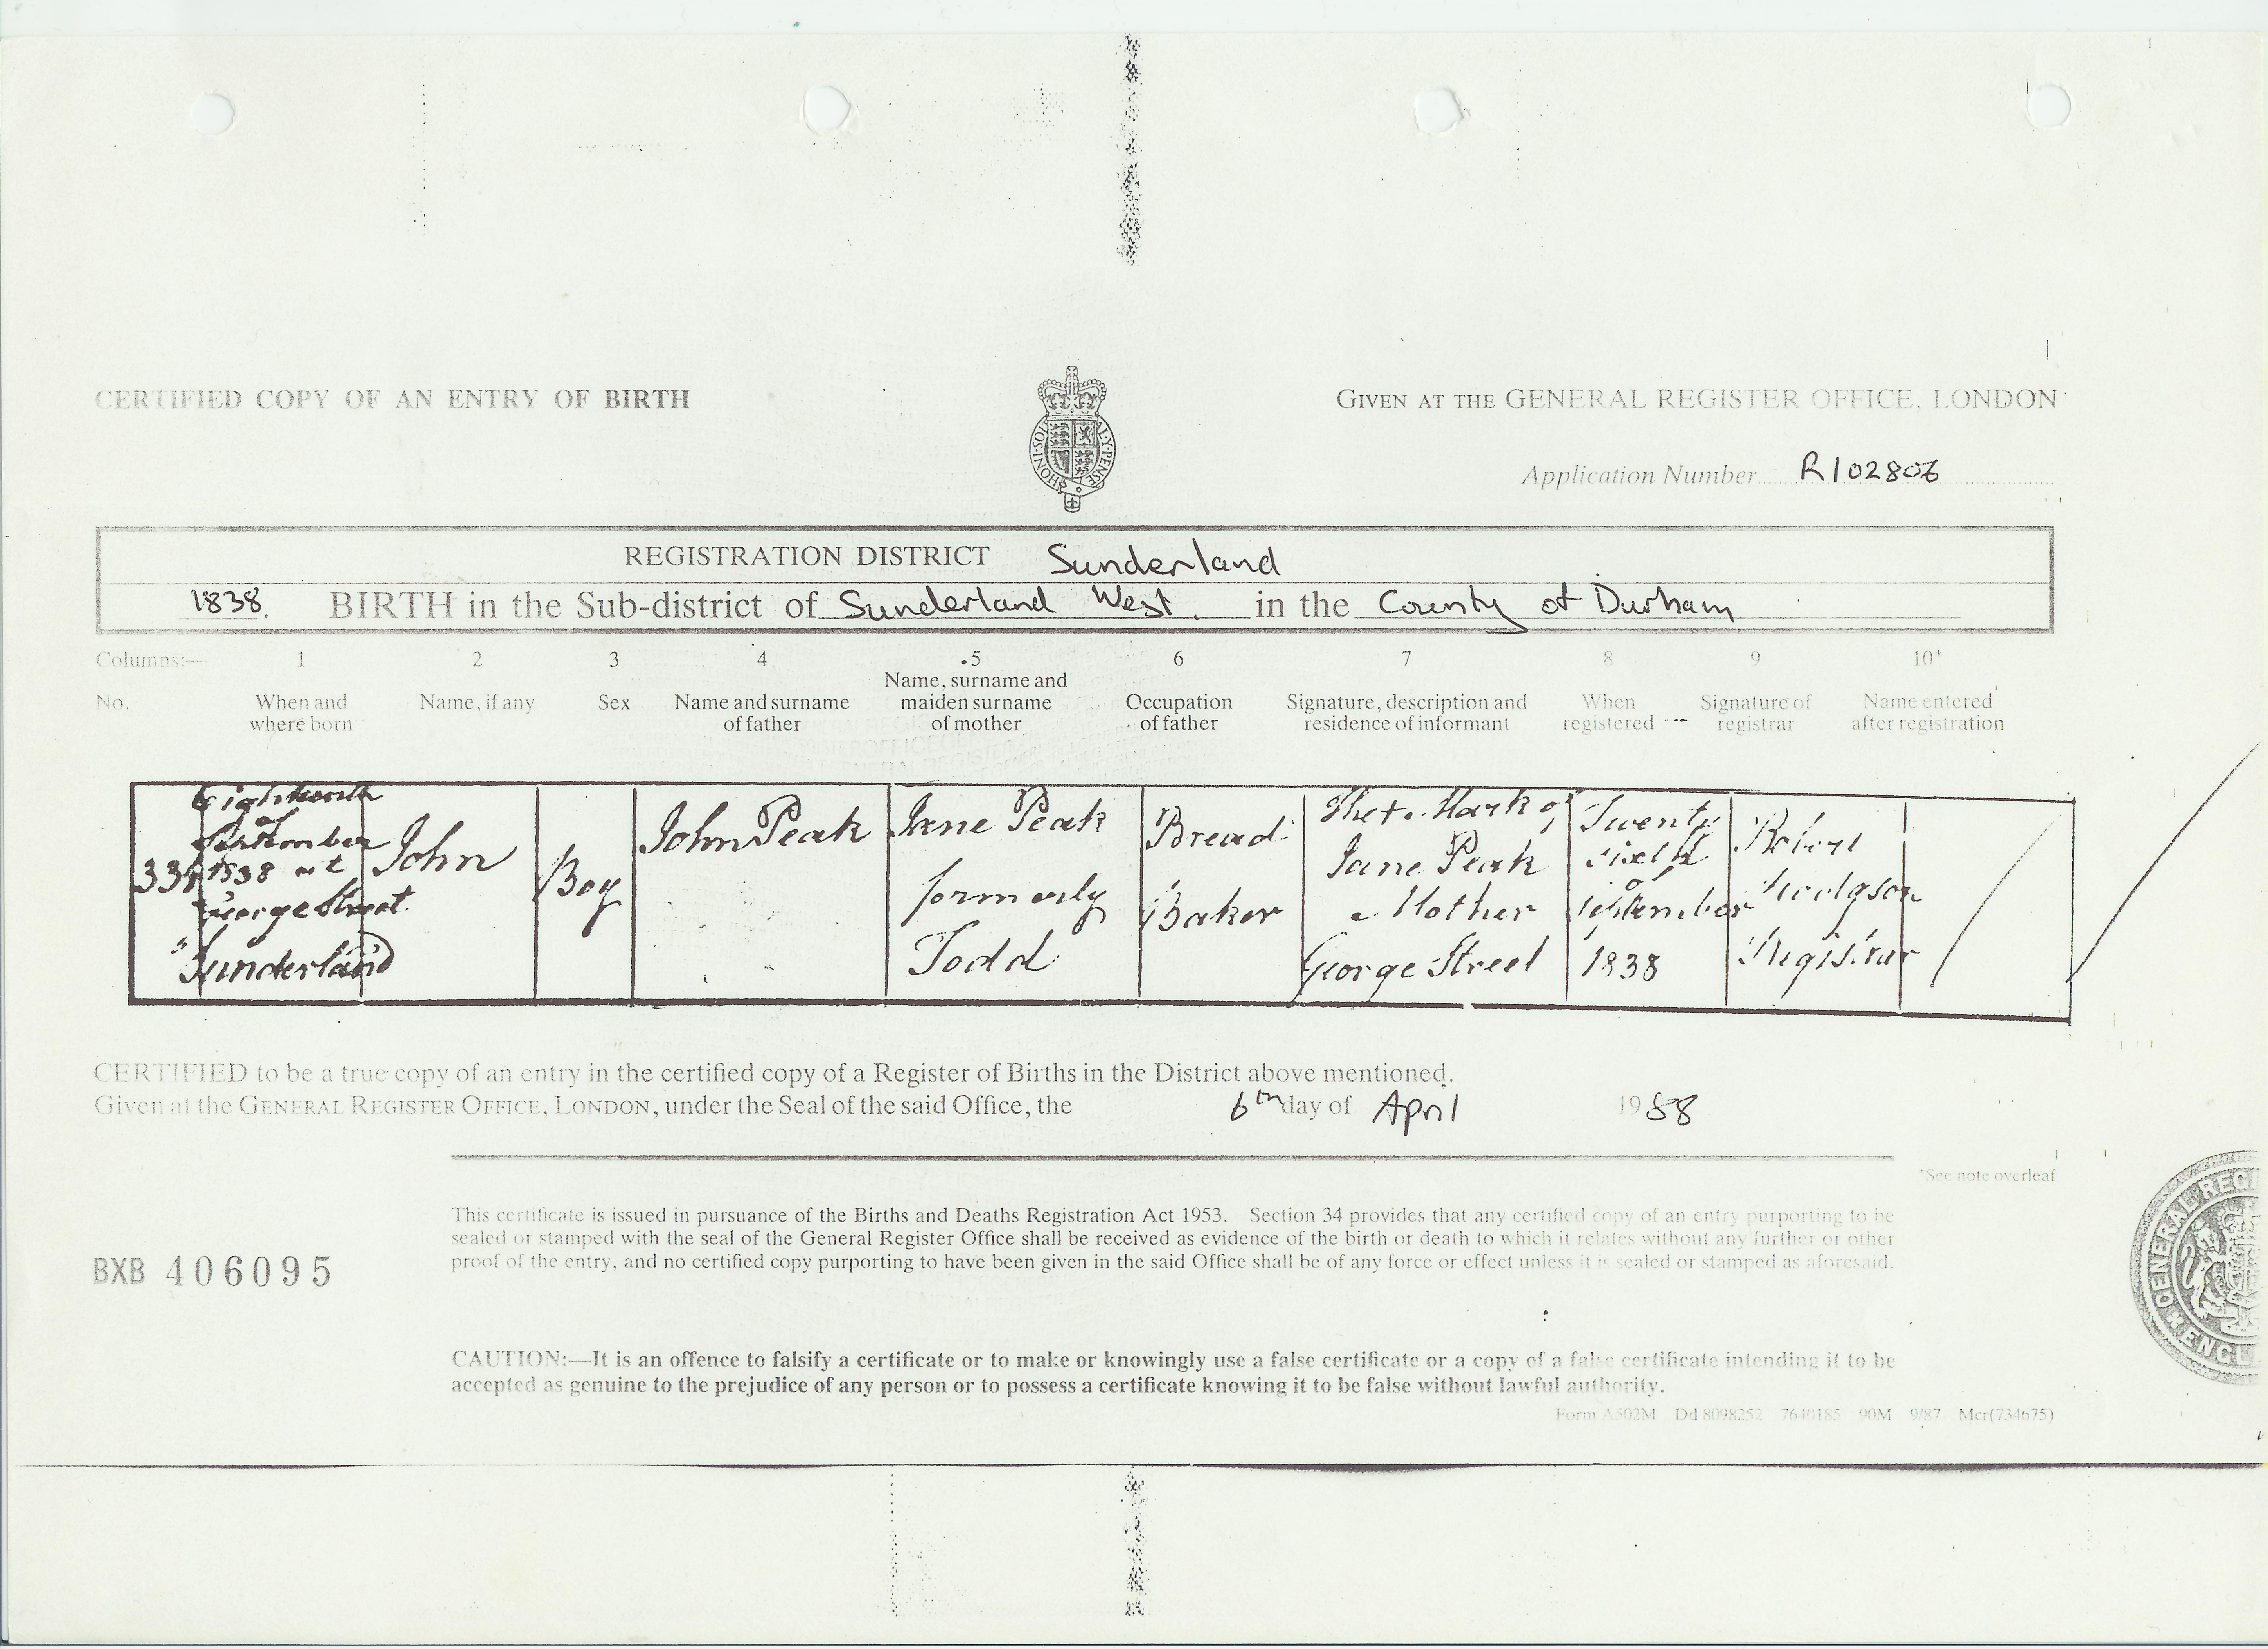 CERTIFIED COPY OF AN ENTRY OF BIRTH
GIVEN AT THE GENERAL REGISTER OFFICE, LONDON
HONI·SOI
AL·Y·PENSE
Application Number R102806
REGISTRATION DISTRICT Sunderland
1838. BIRTH in the Sub-district of Sunderland West. in the County of Durham
Columns:— 1 2 3 4 5 6 7 8 9 10*
No. When and where born
Name, if any
Sex
Name and surname of father
Name, surname and maiden surname of mother
Occupation of father
Signature, description and residence of informant
When registered
Signature of registrar
Name entered after registration
Eighteenth
of
September
1838 at
George Street
Sunderland
John
Boy
John Peak
Jane Peak
formerly
Todd
Bread
Baker
The + Mark of
Jane Peak
Mother
George Street
Twenty
sixth
of
September
1838
Robert
Hodgson
Registrar
CERTIFIED to be a true copy of an entry in the certified copy of a Register of Births in the District above mentioned.
Given at the GENERAL REGISTER OFFICE, LONDON, under the Seal of the said Office, the 6th day of April 1988
*See note overleaf
This certificate is issued in pursuance of the Births and Deaths Registration Act 1953. Section 34 provides that any certified copy of an entry purporting to be
sealed or stamped with the seal of the General Register Office shall be received as evidence of the birth or death to which it relates without any further or other
proof of the entry, and no certified copy purporting to have been given in the said Office shall be of any force or effect unless it is sealed or stamped as aforesaid.
BXB 406095
GENERAL REGI
ENGL
CAUTION:—It is an offence to falsify a certificate or to make or knowingly use a false certificate or a copy of a false certificate intending it to be
accepted as genuine to the prejudice of any person or to possess a certificate knowing it to be false without lawful authority.
Form A502M Dd 8098252 7640185 90M 9/87 Mcr(734675)